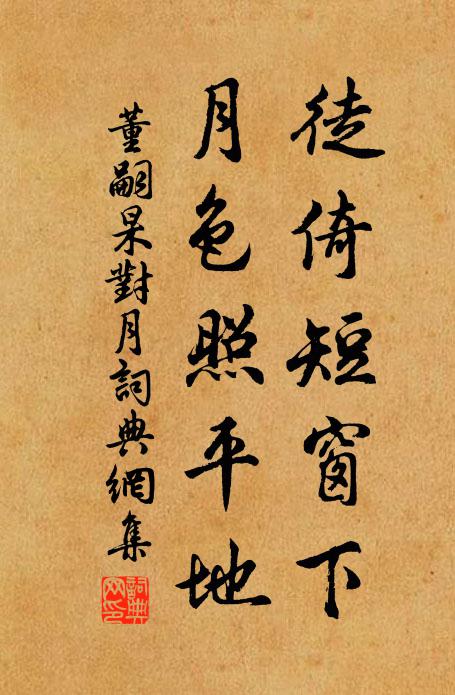 徒倚短窗下
月色照平地
董嗣杲對月詞典網集
詞典网印